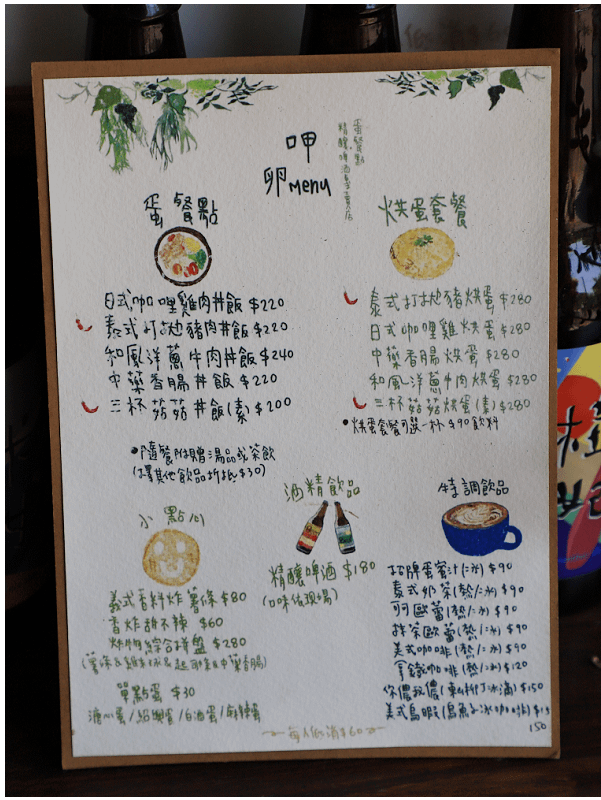 呷
卵menu
蛋餐點
精釀啤酒專賣店
蛋餐點
日式咖哩雞肉丼飯 $220
泰式打拋豬肉丼飯 $220
和風洋蔥牛肉丼飯 $240
中藥香腸丼飯 $220
三杯菇菇丼飯(素) $200
•隨餐附贈湯品或茶飲
(擇其他飲品折抵$30)
烘蛋套餐
泰式打拋豬烘蛋 $280
日式咖哩雞烘蛋 $280
中藥香腸烘蛋 $280
和風洋蔥牛肉烘蛋 $280
三杯菇菇烘蛋(素) $280
•烘蛋套餐可選一杯$90飲料
小點心
義式香料炸薯條 $80
香炸甜不辣 $60
炸物綜合拼盤 $280
單點蛋 $30
溏心蛋/紹興蛋/白酒蛋/麻辣蛋
酒精飲品
精釀啤酒 $180
(口味依現場)
特調飲品
招牌蛋蜜汁(冰) $90
泰式奶茶(熱/冰) $90
可可歐蕾(熱/冰) $90
抹茶歐蕾(熱/冰) $90
美式咖啡(熱/冰) $90
拿鐵咖啡(熱/冰) $120
$150
150
每人低消$60